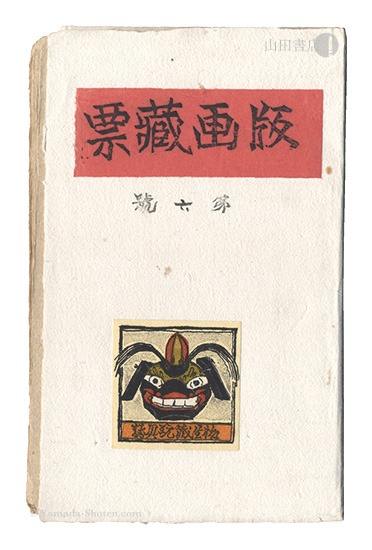 山田書店
版画藏票
第六號
Yamada-Shoten.com